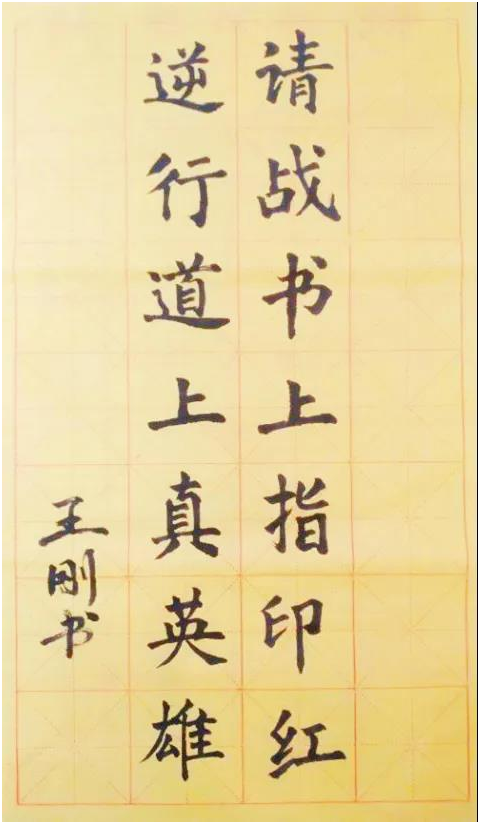 请战书上指印红
逆行道上真英雄
王刚书